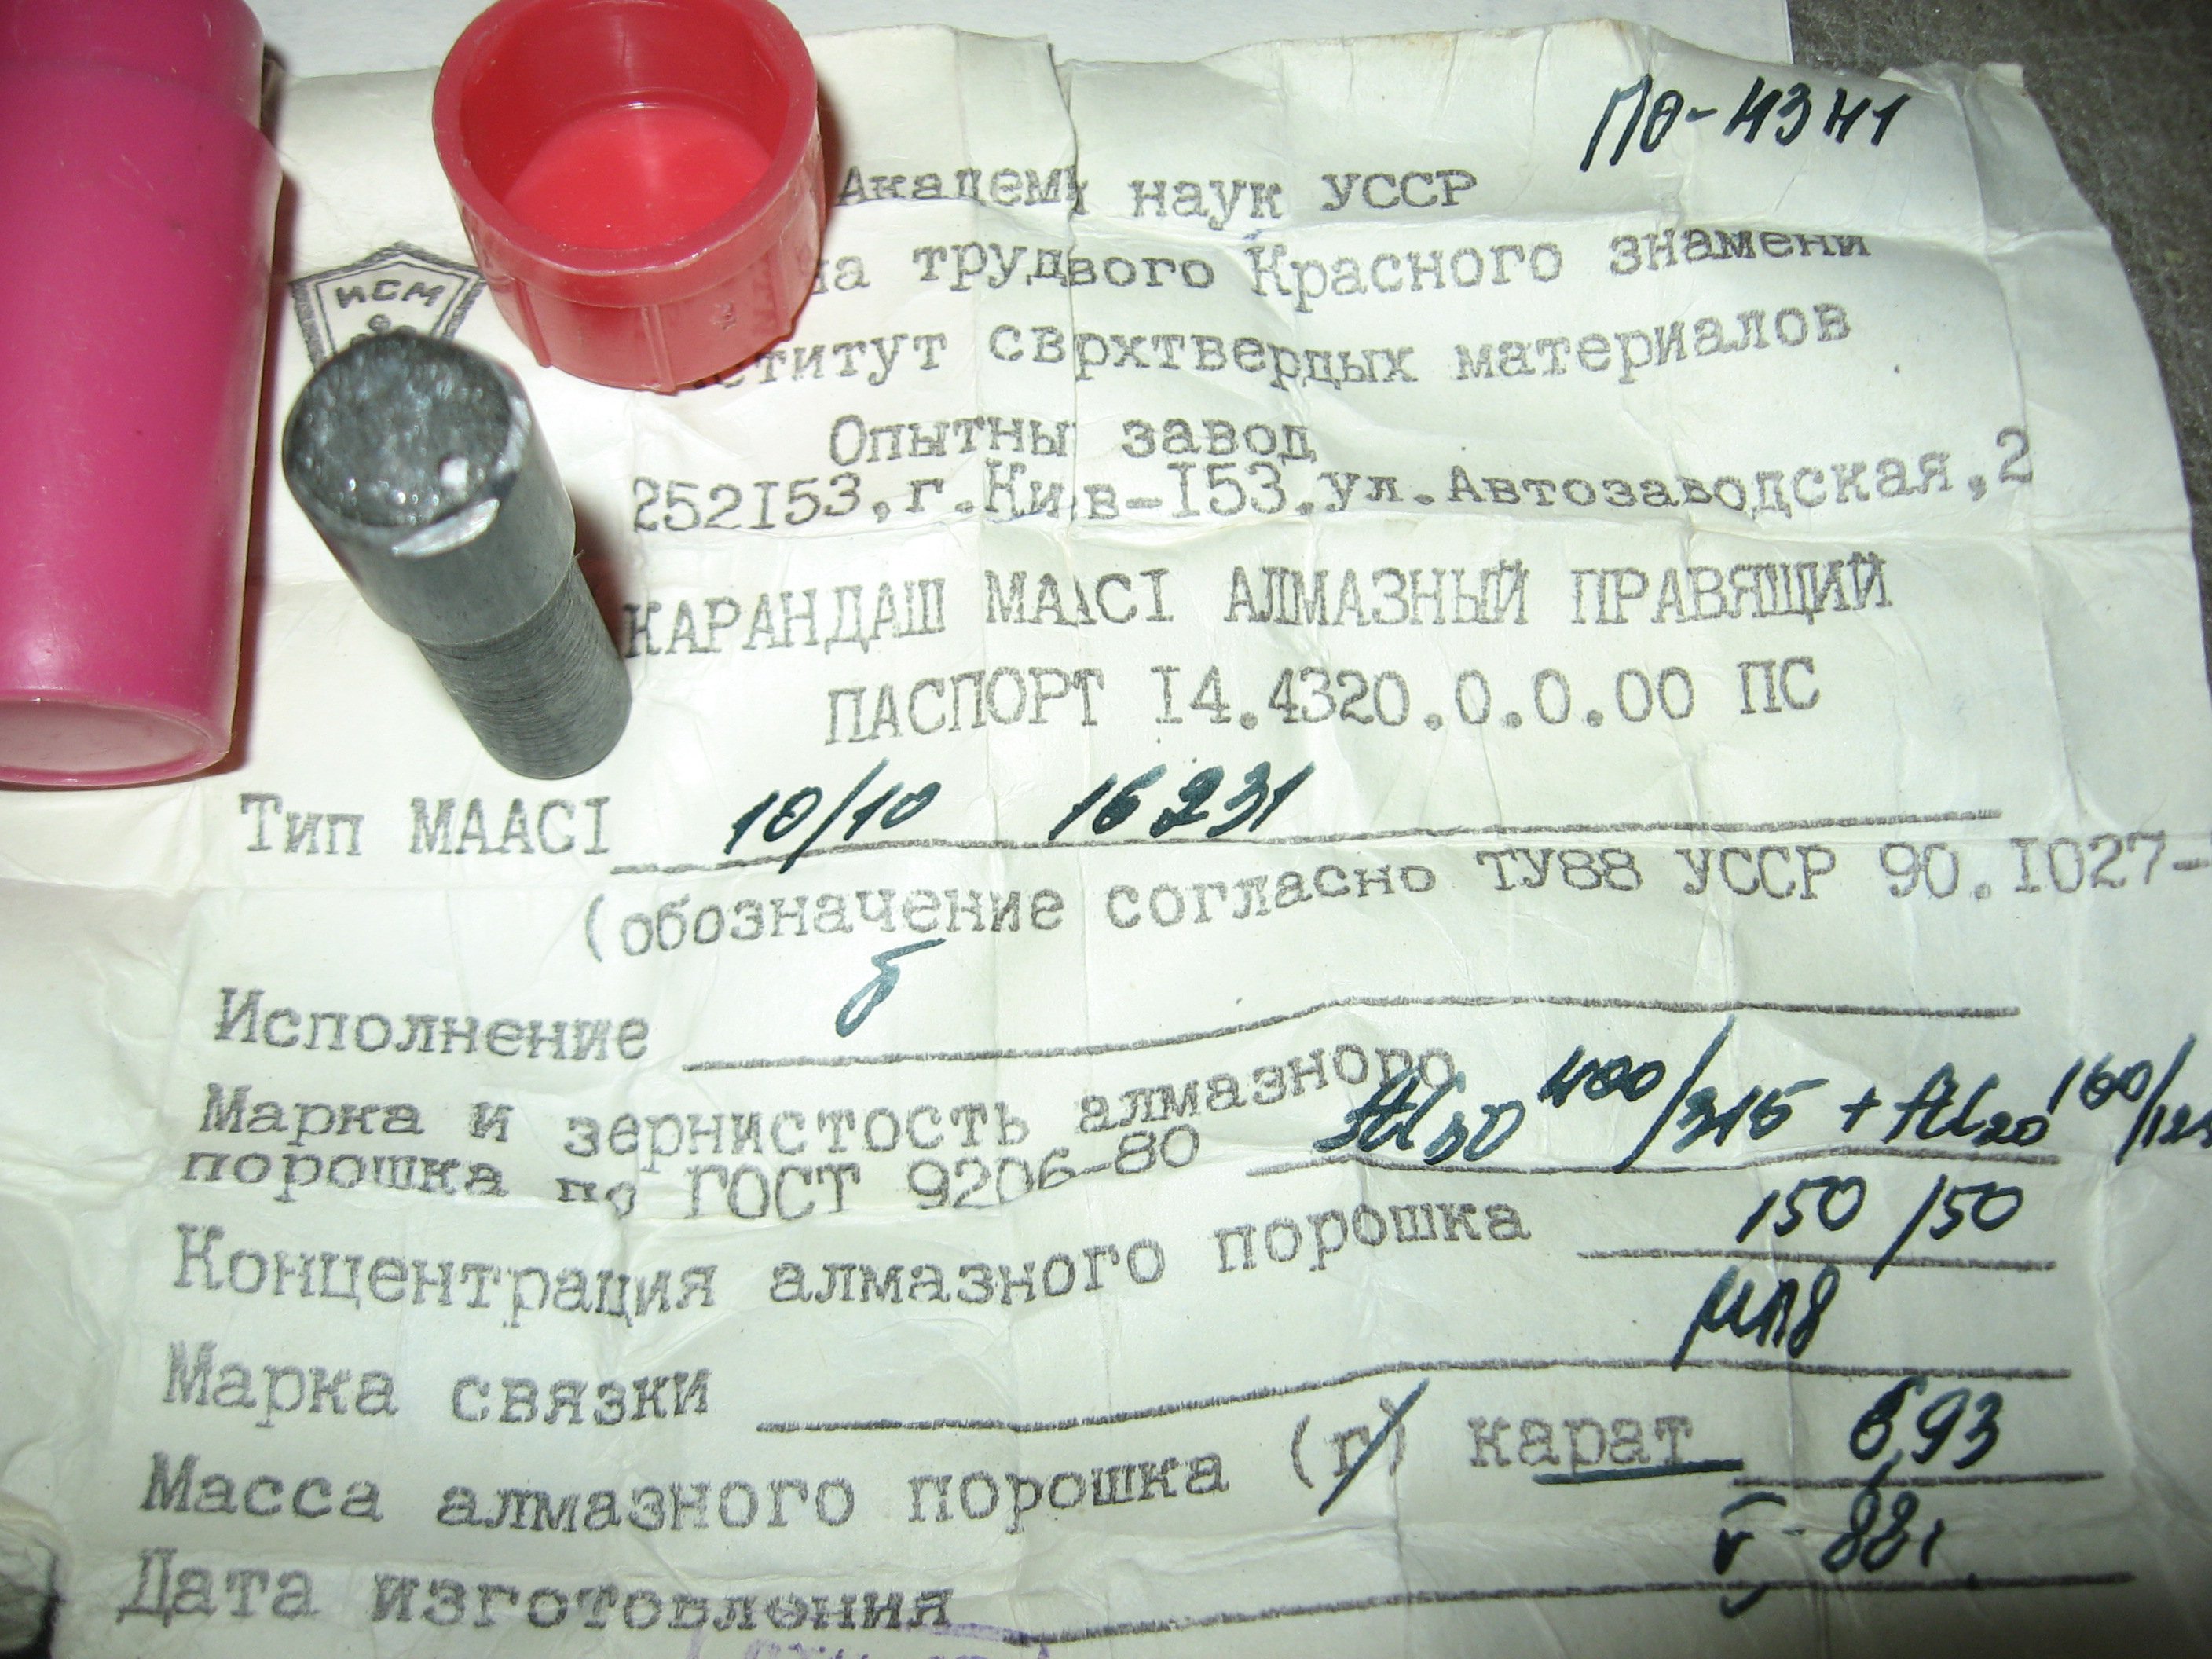 ПО-4341
Академи наук УССР
на трудового Красного знамени
ИСМ
ститут сврхтвердых материалов
Опытны завод
252I53,г.Кив-I53.ул.Автозаводская,2
КАРАНДАШ МААСI АЛМАЗНЫЙ ПРАВЯЩИЙ
ПАСПОРТ I4.4320.0.0.00 ПС
Тип МААСI 10/10 16231
(обозначение согласно ТУ88 УССР 90.I027-
Исполнение б
Марка и зернистость алмазного
порошка по ГОСТ 9206-80 400/315 + 160/12
Концентрация алмазного порошка 150/50
Марка связки
Масса алмазного порошка (г) карат 6,93
Дата изготовления V-88г